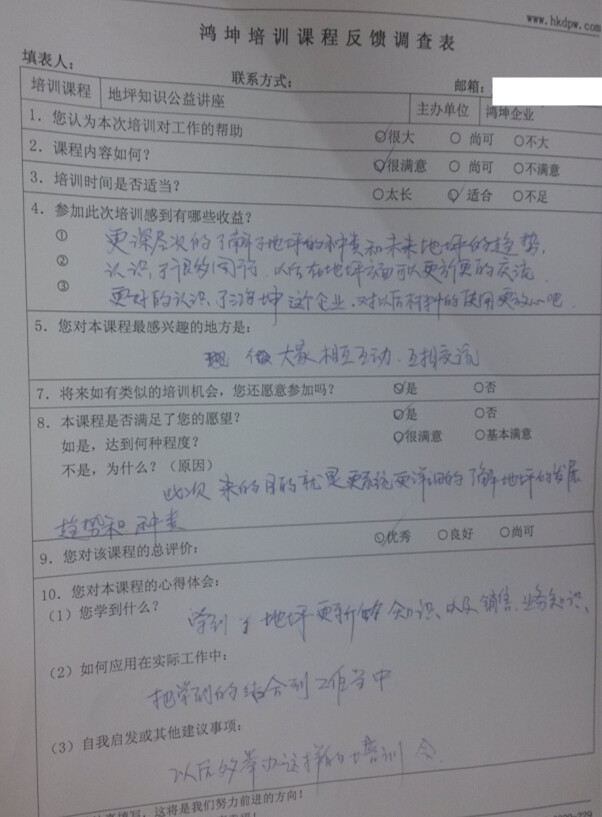 www.hkdpw.com
鸿坤培训课程反馈调查表
填表人： 联系方式： 邮箱：
培训课程 地坪知识公益讲座 主办单位 鸿坤企业
1. 您认为本次培训对工作的帮助 ○很大 ○ 尚可 ○不大
2. 课程内容如何？ ○很满意 ○ 尚可 ○不满意
3. 培训时间是否适当？ ○太长 ○ 适合 ○不足
4. 参加此次培训感到有哪些收益？
① 更深层次的了解了地坪的种类和未来地坪的趋势
② 认识了很多同行，以后在地坪方面可以更方便的交流
③ 更好的认识了鸿坤这个企业，对以后材料的使用更放心吧
5. 您对本课程最感兴趣的地方是:
大家相互互动、互相交流
7. 将来如有类似的培训机会，您还愿意参加吗？ ○是 ○否
8. 本课程是否满足了您的愿望？ ○是 ○否
如是，达到何种程度？ ○很满意 ○基本满意
不是，为什么？（原因）
此次来的目的就是更系统更详细的了解地坪的发展
趋势和种类
9. 您对该课程的总评价: ○优秀 ○良好 ○尚可
10. 您对本课程的心得体会:
(1) 您学到什么？
学到了地坪更新的知识、以及销售、业务知识、
(2) 如何应用在实际工作中:
把学到的结合到工作当中
(3) 自我启发或其他建议事项:
以后多举办这样的培训会
填写，这将是我们努力前进的方向！